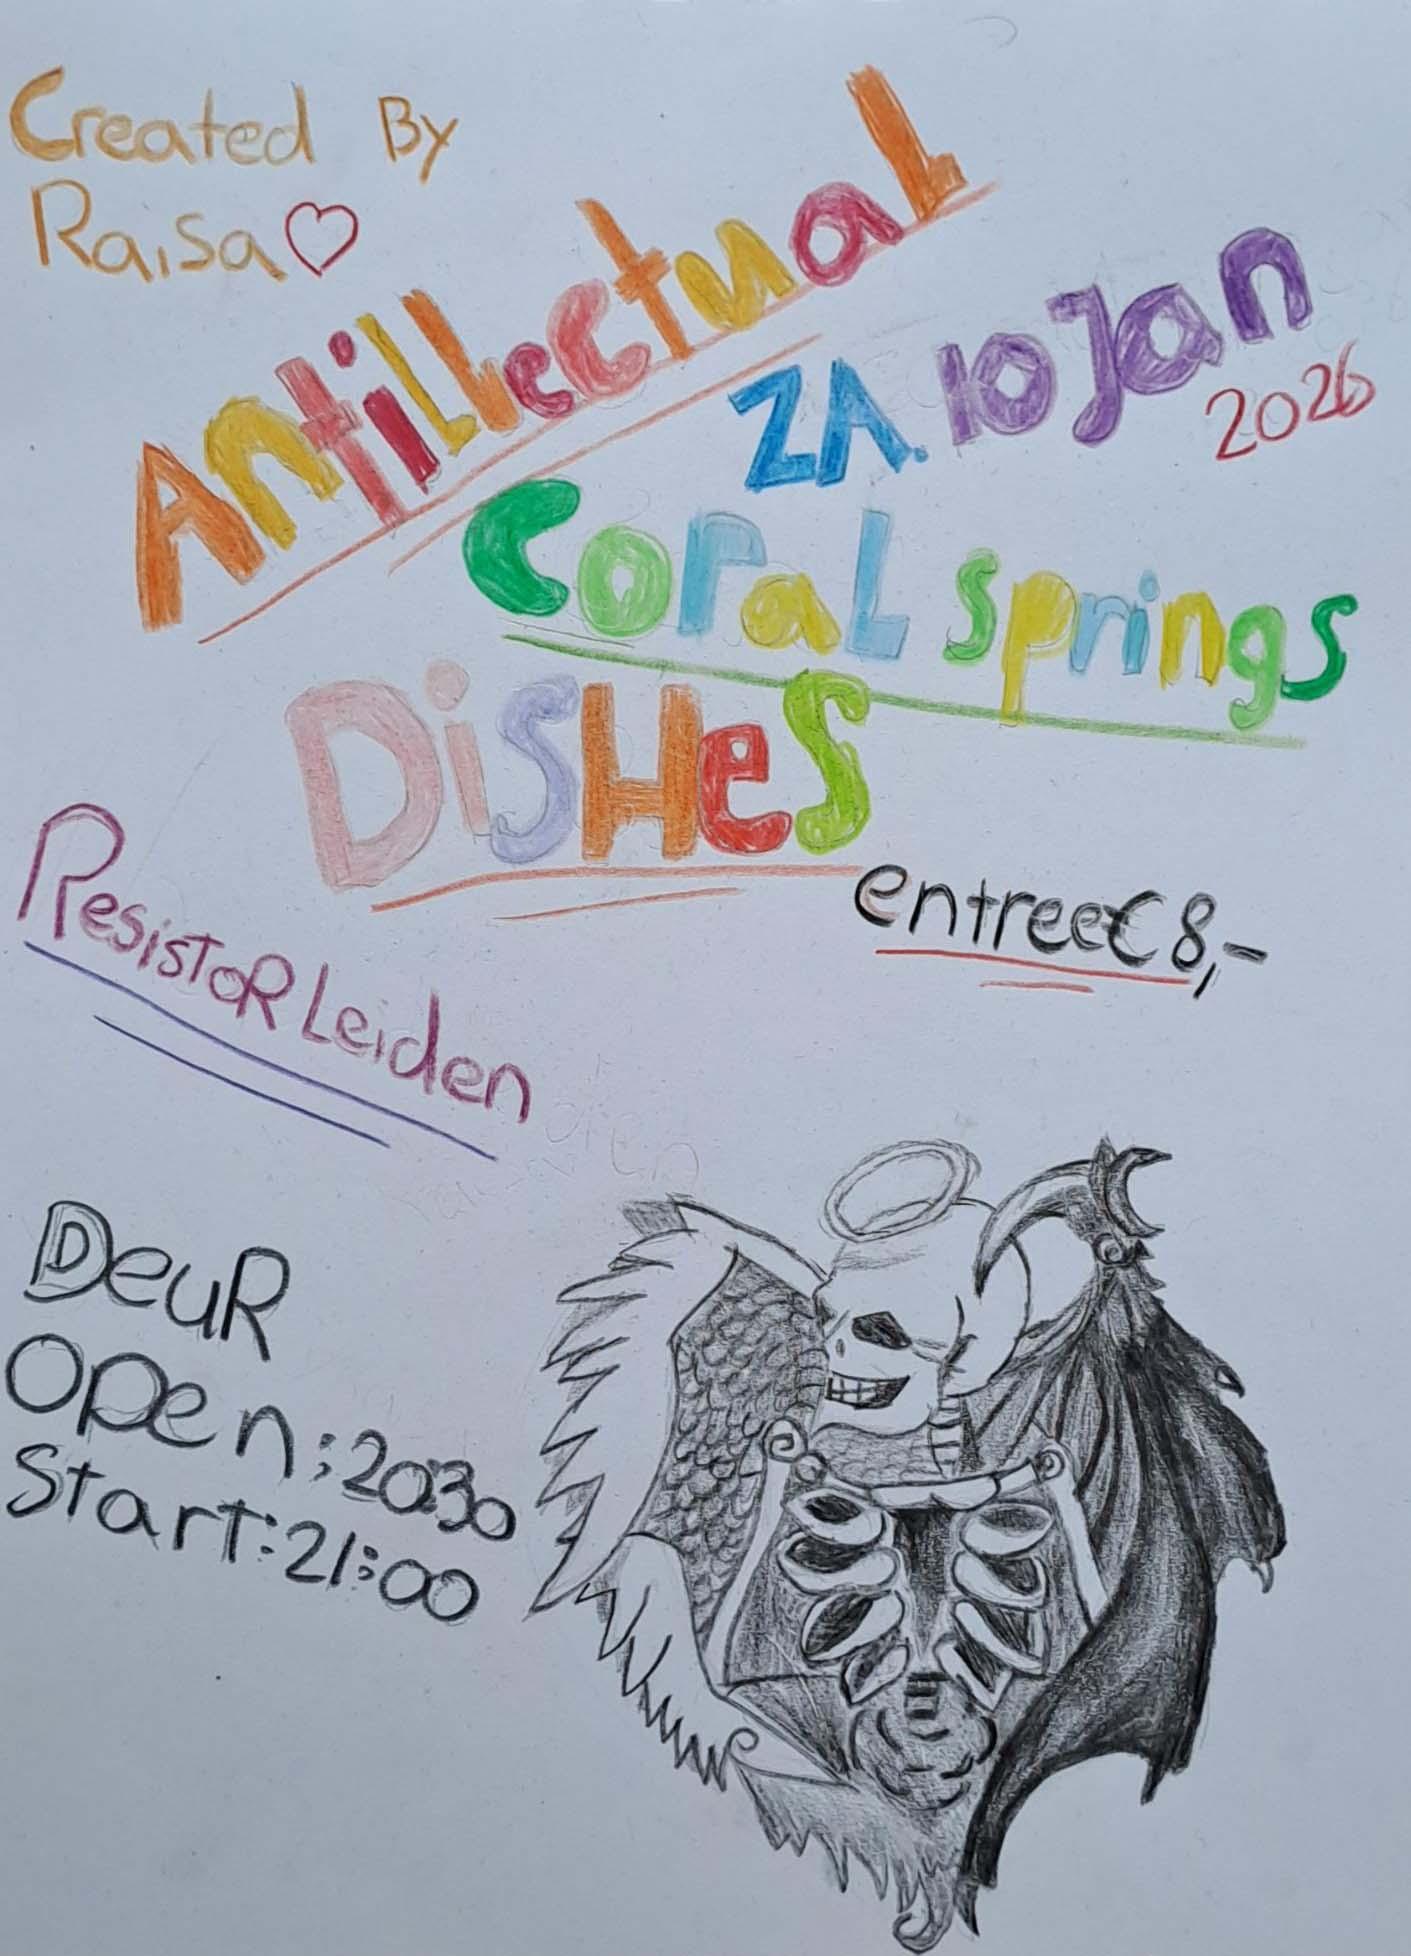 Created By
Raisa
AntiLLectuaL
ZA. 10 Jan
2026
CoraL springs
DiSHeS
entree€8,-
ResistoR Leiden
DeuR
Open; 20:30
Start: 21:00